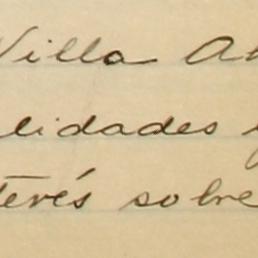 Villa
lidades
terés sobre